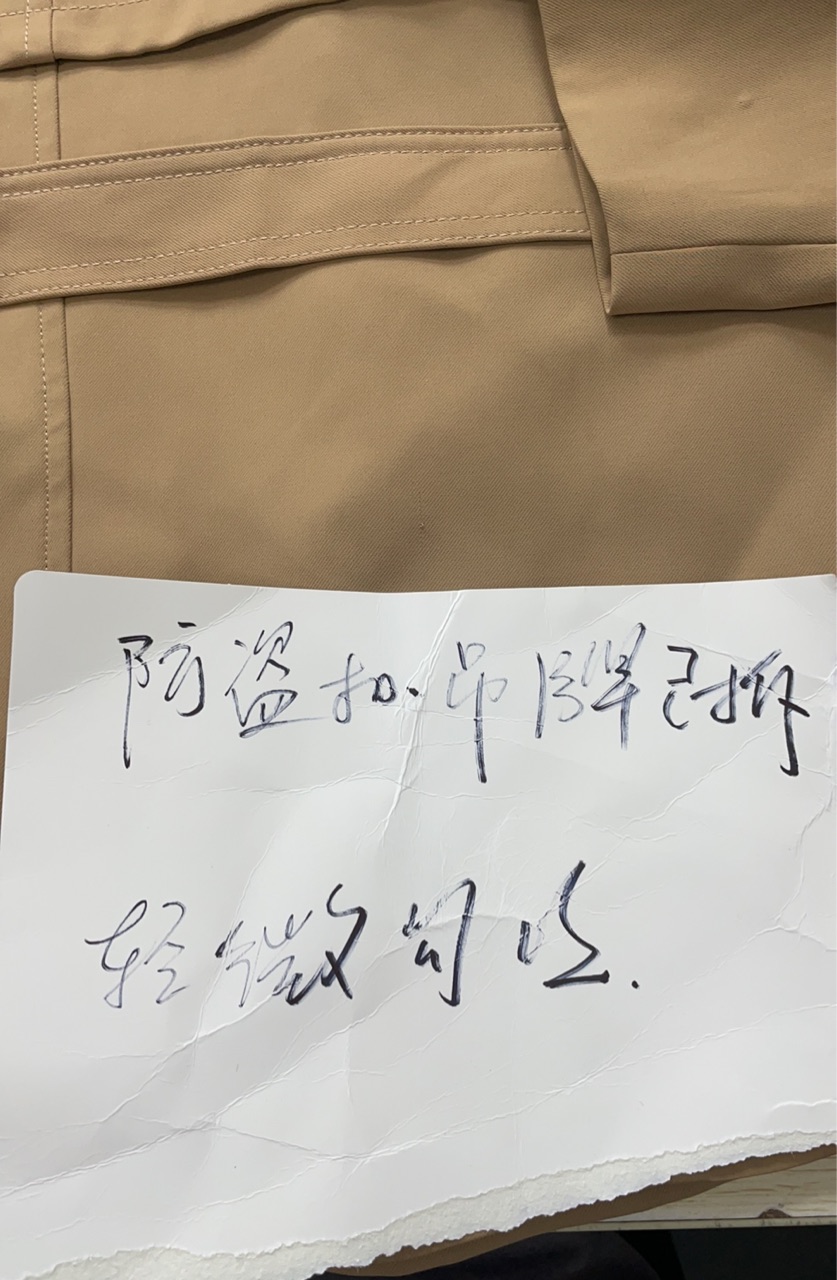 防盗扣.吊牌已拆
轻微勾丝.